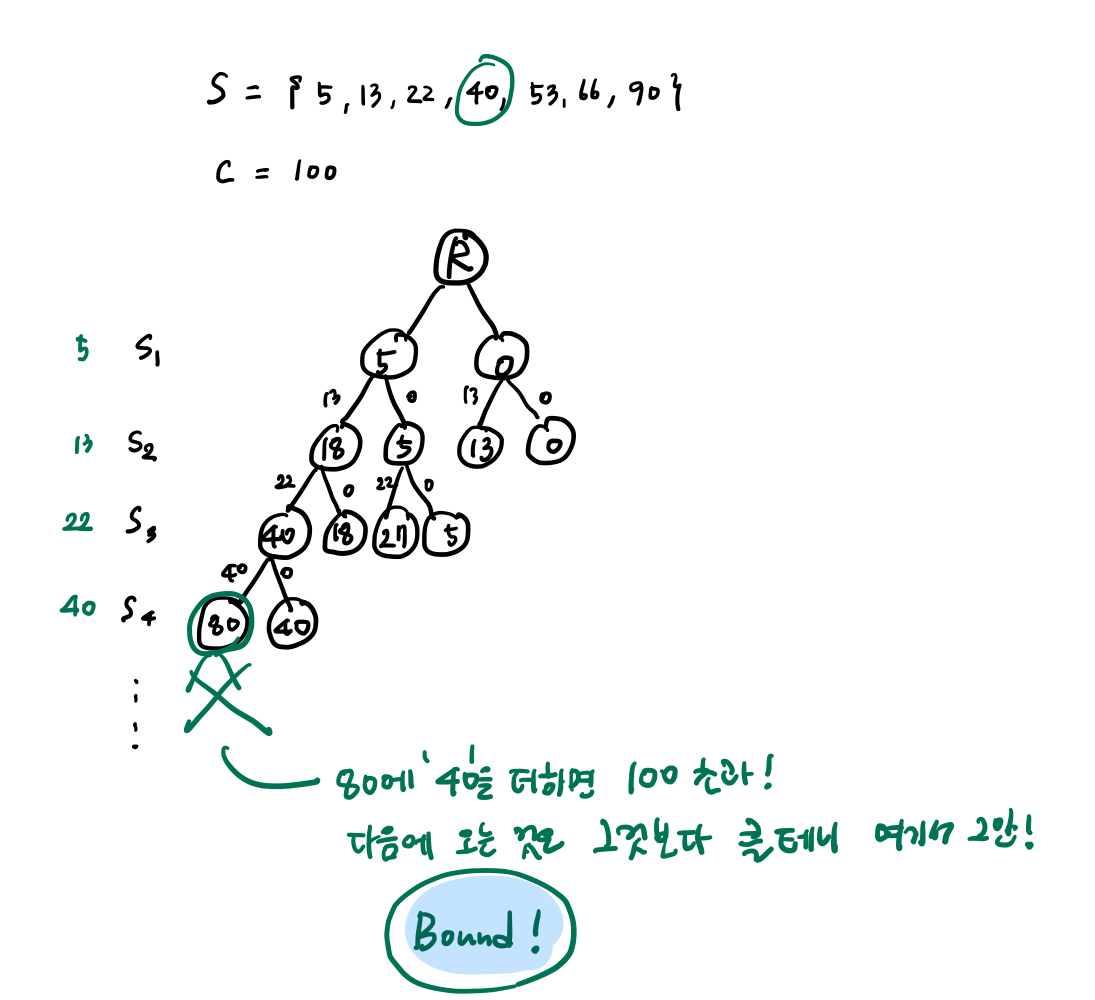 S = { 5, 13, 22, 40, 53, 66, 90 }
C = 100
R
5 S1 5 0
13 0 13 0
13 S2 18 5 13 0
22 0 22 0
22 S3 40 18 27 5
40 0
40 S4 80 40
80에 '40'을 더하면 100 초과!
다음에 오는 것은 그것보다 클테니 여기서 그만!
Bound!